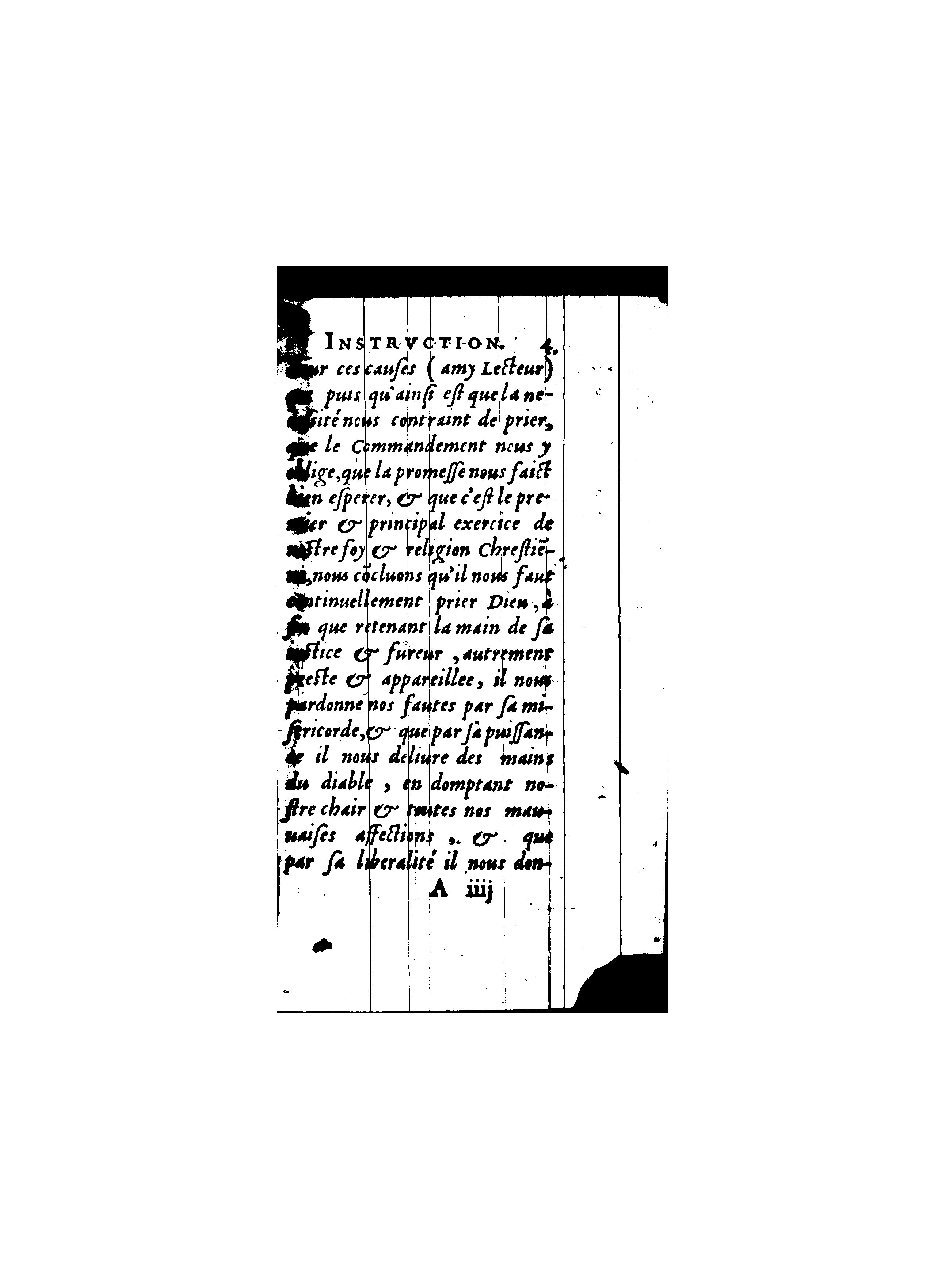 INSTRVCTION. 4.
ces cauſes ( amy Lecteur)
puis qu'ainſi eſt que la ne-
nous contraint de prier,
que le Commandement nous y
oblige, que la promeſſe nous faict
bien eſperer, & que c'eſt le pre-
mier & principal exercice de
noſtre foy & religion Chreſtiẽ-
ne, nous cõcluons qu'il nous faut
continuellement prier Dieu, à
fin que retenant la main de ſa
iuſtice & fureur , autrement
preſte & appareillee, il nous
pardonne nos fautes par ſa mi-
ſericorde, & que par ſa puiſſan-
ce il nous deliure des mains
du diable , en domptant no-
ſtre chair & toutes nos mau-
uaiſes affections , & que
par ſa liberalité il nous don-
A iiij